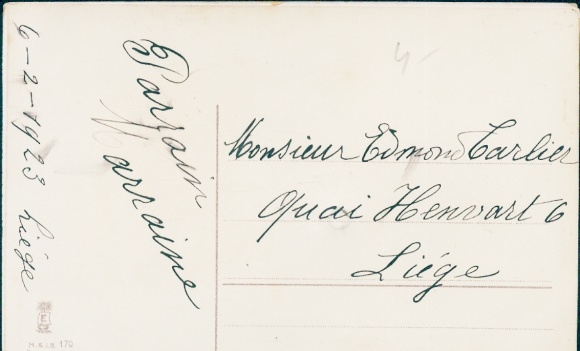 6-2-1923 Liège
Parrain
Marraine
4-
Monsieur Edmond Carlier
Quai Henvart 6
Liége
E
M.S.i.B. 170